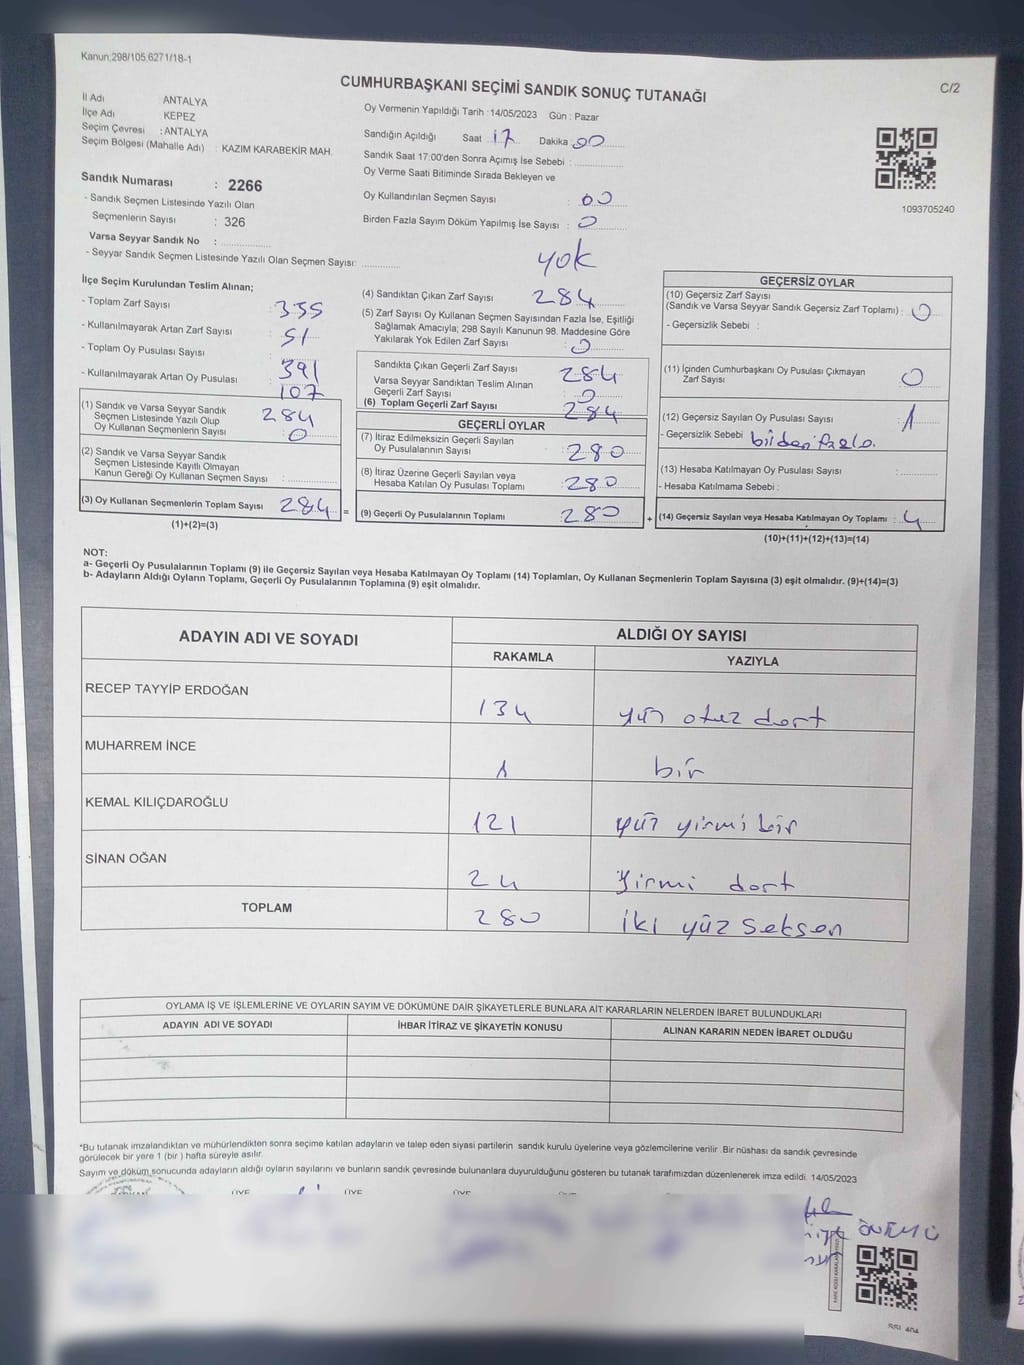 Kanun:298/105,6271/18-1
CUMHURBAŞKANI SEÇİMİ SANDIK SONUÇ TUTANAĞI
C/2
İl Adı ANTALYA
İlçe Adı KEPEZ
Seçim Çevresi : ANTALYA
Seçim Bölgesi (Mahalle Adı) : KAZIM KARABEKİR MAH.
Sandık Numarası : 2266
- Sandık Seçmen Listesinde Yazılı Olan
Seçmenlerin Sayısı : 326
Varsa Seyyar Sandık No :
- Seyyar Sandık Seçmen Listesinde Yazılı Olan Seçmen Sayısı:
Oy Vermenin Yapıldığı Tarih :14/05/2023 Gün : Pazar
Sandığın Açıldığı Saat 17 Dakika 00
Sandık Saat 17:00'den Sonra Açımış İse Sebebi :
Oy Verme Saati Bitiminde Sırada Bekleyen ve
Oy Kullandırılan Seçmen Sayısı : 00
Birden Fazla Sayım Döküm Yapılmış İse Sayısı : 0
yok
1093705240
İlçe Seçim Kurulundan Teslim Alınan;
- Toplam Zarf Sayısı : 335
- Kullanılmayarak Artan Zarf Sayısı : 51
- Toplam Oy Pusulası Sayısı : 391
- Kullanılmayarak Artan Oy Pusulası : 107
(1) Sandık ve Varsa Seyyar Sandık
Seçmen Listesinde Yazılı Olup
Oy Kullanan Seçmenlerin Sayısı : 284
0
(2) Sandık ve Varsa Seyyar Sandık
Seçmen Listesinde Kayıtlı Olmayan
Kanun Gereği Oy Kullanan Seçmen Sayısı :
(3) Oy Kullanan Seçmenlerin Toplam Sayısı 284 =
(1)+(2)=(3)
(4) Sandıktan Çıkan Zarf Sayısı : 284
(5) Zarf Sayısı Oy Kullanan Seçmen Sayısından Fazla İse, Eşitliği
Sağlamak Amacıyla; 298 Sayılı Kanunun 98. Maddesine Göre
Yakılarak Yok Edilen Zarf Sayısı : 0
Sandıkta Çıkan Geçerli Zarf Sayısı : 284
Varsa Seyyar Sandıktan Teslim Alınan
Geçerli Zarf Sayısı : 0
(6) Toplam Geçerli Zarf Sayısı : 284
GEÇERLİ OYLAR
(7) İtiraz Edilmeksizin Geçerli Sayılan
Oy Pusulalarının Sayısı : 280
(8) İtiraz Üzerine Geçerli Sayılan veya
Hesaba Katılan Oy Pusulası Toplamı : 280
(9) Geçerli Oy Pusulalarının Toplamı : 280 +
GEÇERSİZ OYLAR
(10) Geçersiz Zarf Sayısı
(Sandık ve Varsa Seyyar Sandık Geçersiz Zarf Toplamı) : 0
- Geçersizlik Sebebi :
(11) İçinden Cumhurbaşkanı Oy Pusulası Çıkmayan
Zarf Sayısı : 0
(12) Geçersiz Sayılan Oy Pusulası Sayısı : 1
- Geçersizlik Sebebi birden fazla.
(13) Hesaba Katılmayan Oy Pusulası Sayısı :
- Hesaba Katılmama Sebebi :
(14) Geçersiz Sayılan veya Hesaba Katılmayan Oy Toplamı : 4
(10)+(11)+(12)+(13)=(14)
NOT:
a- Geçerli Oy Pusulalarının Toplamı (9) ile Geçersiz Sayılan veya Hesaba Katılmayan Oy Toplamı (14) Toplamları, Oy Kullanan Seçmenlerin Toplam Sayısına (3) eşit olmalıdır. (9)+(14)=(3)
b- Adayların Aldığı Oyların Toplamı, Geçerli Oy Pusulalarının Toplamına (9) eşit olmalıdır.
ADAYIN ADI VE SOYADI ALDIĞI OY SAYISI
RAKAMLA YAZIYLA
RECEP TAYYİP ERDOĞAN 134 yüz otuz dört
MUHARREM İNCE 1 bir
KEMAL KILIÇDAROĞLU 121 yüz yirmi bir
SİNAN OĞAN 24 Yirmi dört
TOPLAM 280 iki yüz seksen
OYLAMA İŞ VE İŞLEMLERİNE VE OYLARIN SAYIM VE DÖKÜMÜNE DAİR ŞİKAYETLERLE BUNLARA AİT KARARLARIN NELERDEN İBARET BULUNDUKLARI
ADAYIN ADI VE SOYADI İHBAR İTİRAZ VE ŞİKAYETİN KONUSU ALINAN KARARIN NEDEN İBARET OLDUĞU
*Bu tutanak imzalandıktan ve mühürlendikten sonra seçime katılan adayların ve talep eden siyasi partilerin sandık kurulu üyelerine veya gözlemcilerine verilir .Bir nüshası da sandık çevresinde
görülecek bir yere 1 (bir ) hafta süreyle asılır.
Sayım ve döküm sonucunda adayların aldığı oyların sayılarını ve bunların sandık çevresinde bulunanlara duyurulduğunu gösteren bu tutanak tarafımızdan düzenlenerek imza edildi. 14/05/2023
ÜYE ÜYE ÜYE